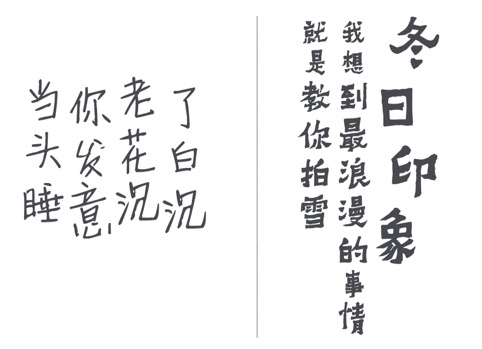 当你老了
头发花白
睡意沉沉
冬日印象
我想到最浪漫的事情
就是教你拍雪